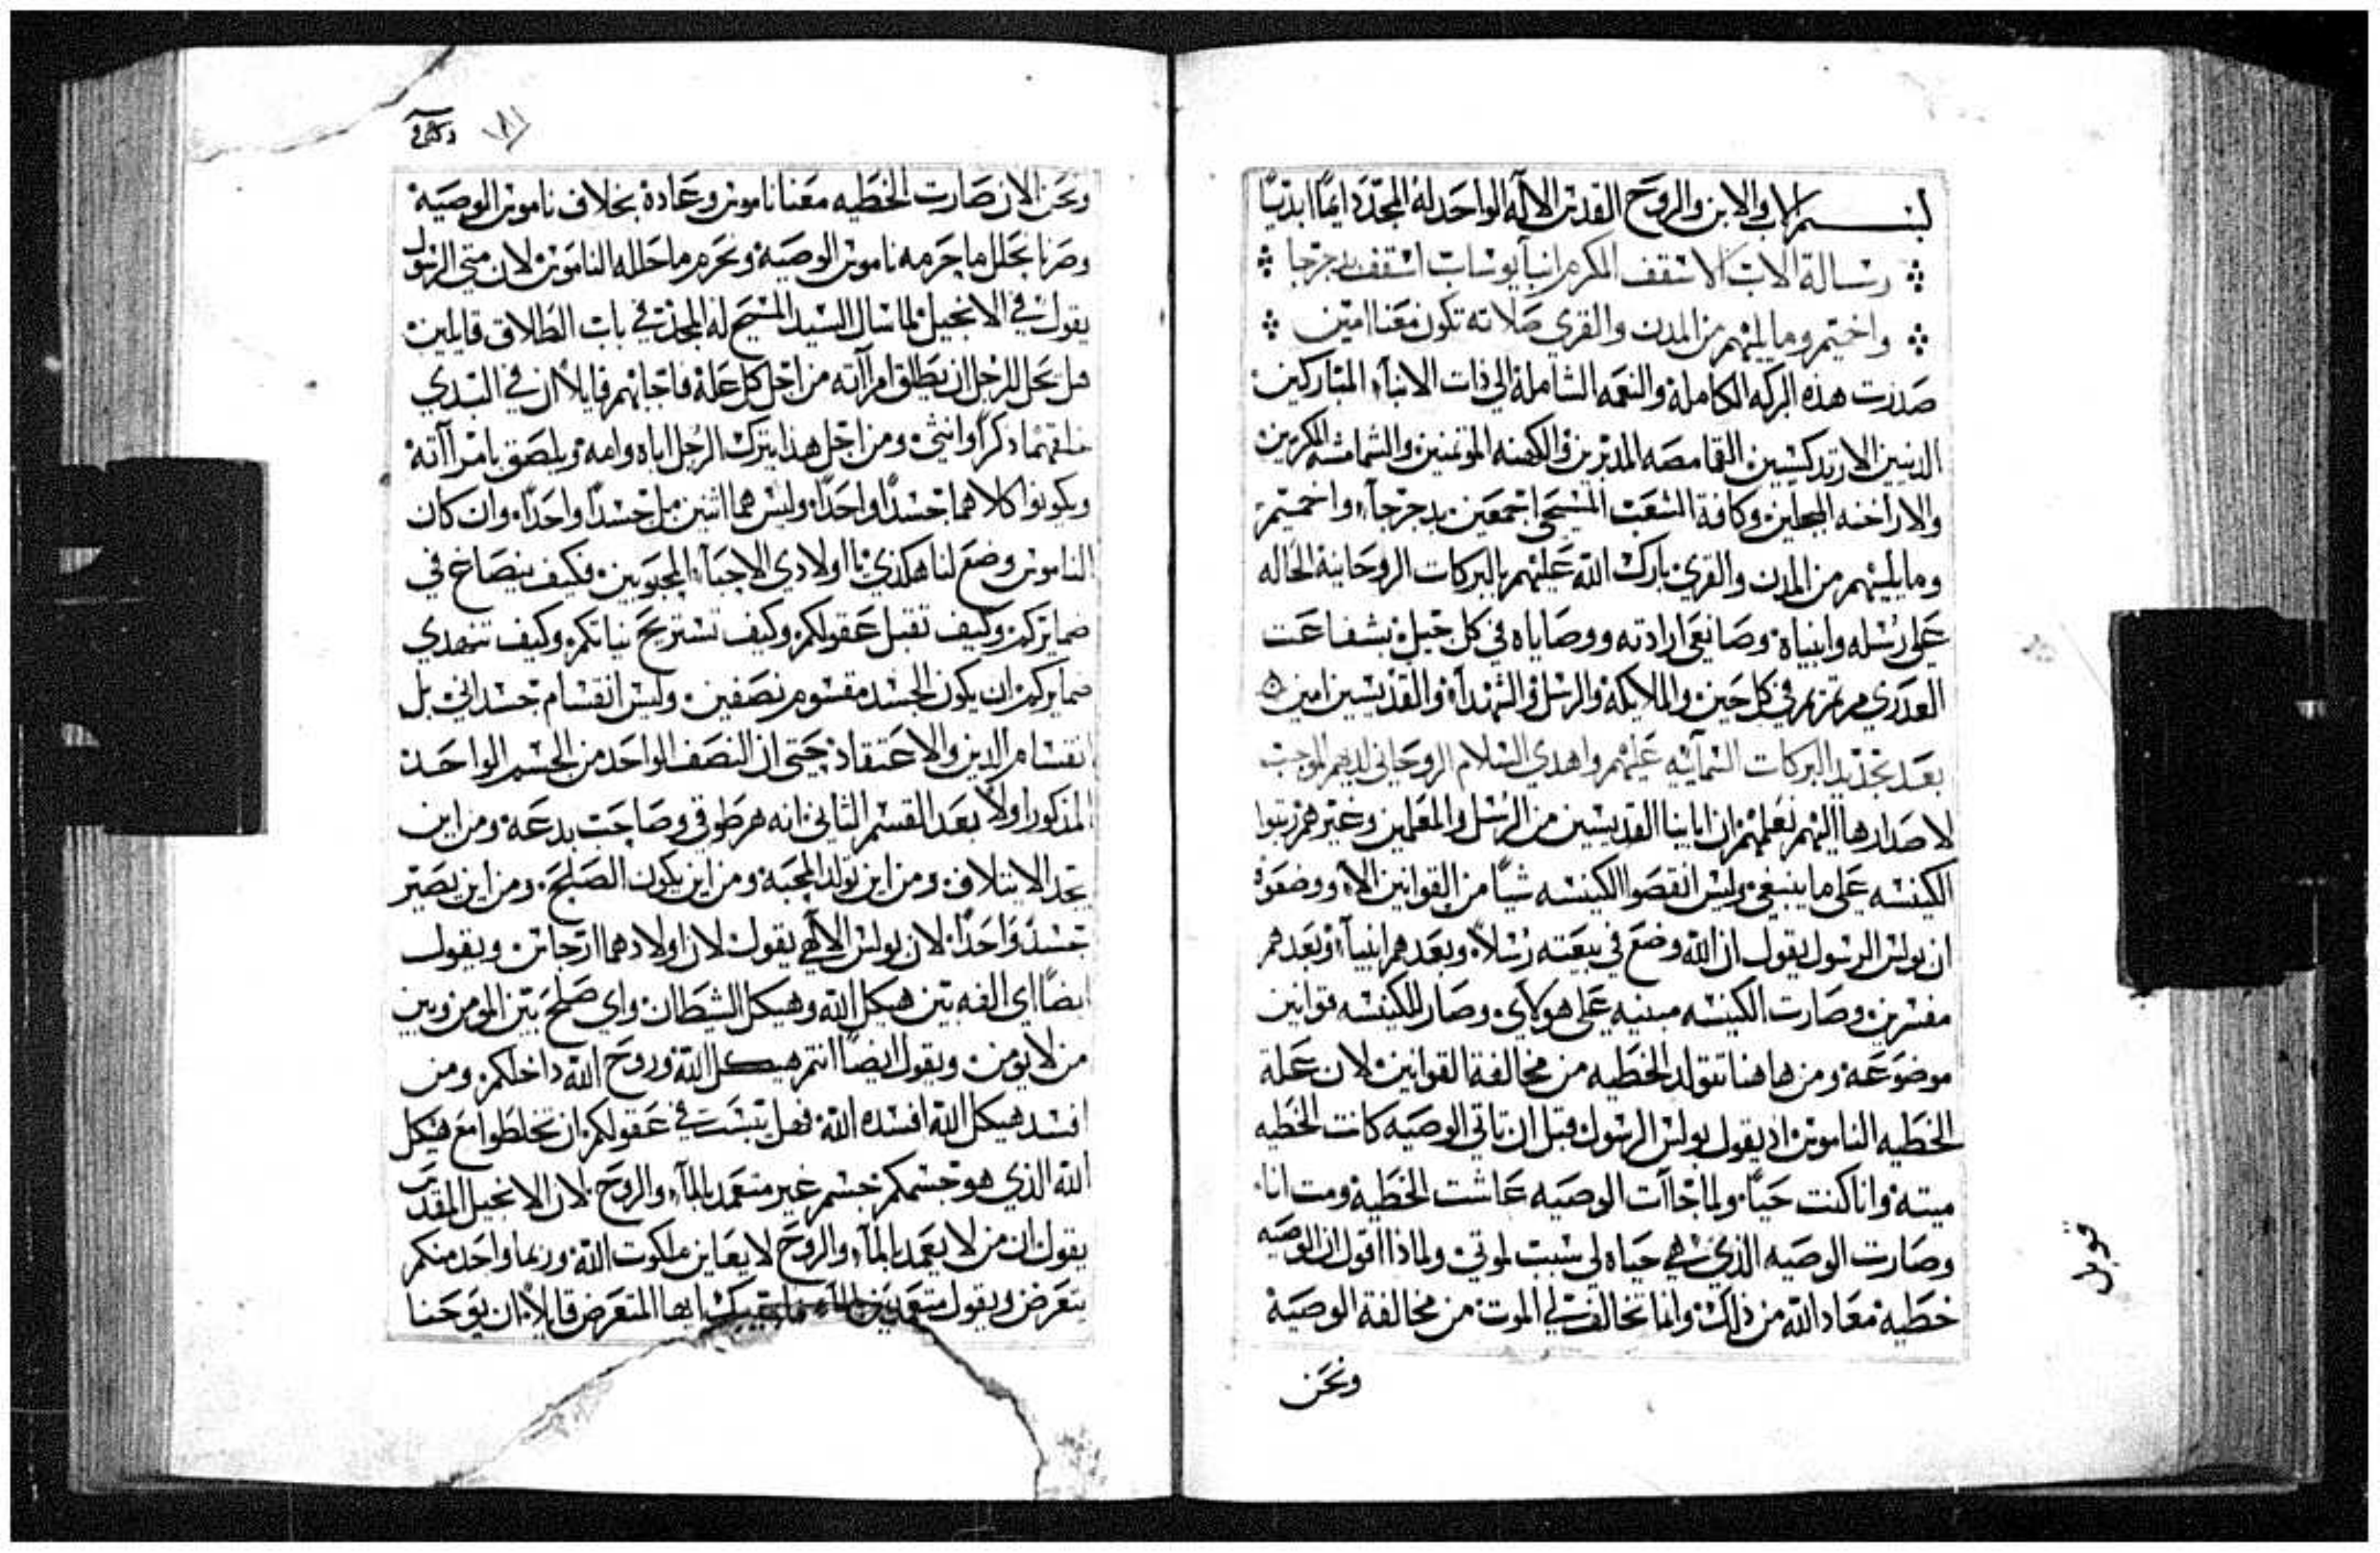 بسم الاب والابن والروح القدس الاله الواحد له المجد دايماً ابدياً
رسالة الاب الاسقف المكرم انبا يوساب اسقف جرجا
واخميم وما يليهم من المدن والقري صلاته تكون معنا امين
صدرت هذه البركه الكامله والنعمه الشامله الي ذات الابناء المباركين
الدينين الارتدكسيين القمامصه المدبرين والكهنه الموتمنين والشمامسه المكرمين
والاراخنه المبجلين وكافة الشعب المسيحي اجمعين بدجرجاء واخميم
وما يليهم من المدن والقري بارك الله عليهم بالبركات الروحانية الحاله
علي رسله وانبياه وصانعي ارادته ووصاياه في كل جيل بشفاعت
العدري مرتمريم في كل حين والملايكه والرسل والشهداء والقديسين امين
بعد تجديد البركات السمآئيه عليهم واهدي السلام الروحاني لديهم الموجب
لاصدارها اليهم نعلمهم ان ابائنا القديسين من الرسل والمعلمين وغيرهم رتبوا
الكنيسه علي ما ينبغي وليس انقصوا الكنيسه شياً من القوانين الا ووضعوه
ان بولس الرسول يقول ان الله وضع في بيعته رسلاً وبعدهم انبياء وبعدهم
مفسرين وصارت الكنيسه مبنيه علي هولاي وصار للكنيسه قوانين
موضوعه ومن هاهنا تتولد الخطيه من مخالفة القوانين لان علة
الخطيه الناموس اذ يقول بولس الرسول قبل ان تاتي الوصيه كانت الخطيه
ميته وانا كنت حياً ولما جاآت الوصيه عاشت الخطية ومت انا
وصارت الوصيه الذي هي حياه لي سبب لموتي ولماذا اقول ان الوصيه
خطية معاد الله من ذلك وانما تخالفت لي الموت من مخالفة الوصية
ونحن
قوبل
ونحن الان صارت الخطيه معنا ناموس وعادة بخلاف ناموس الوصية
وصرنا نحلل ما حرمه ناموس الوصية ونحرم ما حلله الناموس لان متي الرسول
يقول في الانجيل لما سال السيد المسيح له المجد في باب الطلاق قايلين
هل يحل للرجل ان يطلق امراته من اجل كل علة فاجابهم قايلاً ان في البدي
خلقهما ذكراً وانثي ومن اجل هذا يترك الرجل اباه وامه ويلصق بامرآاته
ويكونوا كلاهما جسداً واحداً وليس هما اثنين بل جسداً واحداً وان كان
الناموس وضع لنا هكذي يا اولادي الاحباء المحبوبين فكيف ينصاغ في
ضمايركم وكيف تقبل عقولكم وكيف تستريح نياتكم وكيف تتهدي
ضمايركم ان يكون الجسد مقسوم نصفين وليس انقسام جسداني بل
انقسام الدين والاعتقاد حتي ان النصف الواحد من الجسم الواحد
المذكور اولاً بعد القسم الثاني انه هرطوقي وصاحب بدعة ومن اين
يحد الايتلاف ومن اين تولد المحبة ومن اين يكون الصلح ومن اين يصير
جسد واحداً لان بولس الالهي يقول لان اولادهما ارجاس ويقول
ايضاً اي الفه بين هيكل الله وهيكل الشيطان واي صلح بين المومن وبين
من لا يومن ويقول ايضاً انتم هيكل الله وروح الله داخلكم ومن
افسد هيكل الله افسده الله فهل يتبسَت في عقولكم ان تخلطوا مع هيكل
الله الذي هو جسمكم جسم غير متعمد بالماء والروح لان الانجيل المقدس
يقول ان من لا يعمد بالماء والروح لا يعاين ملكوت الله وربما واحد منكم
يتعرض ويقول متعمدين بالماء ايها المتعرض قايلاً ان يوحنا